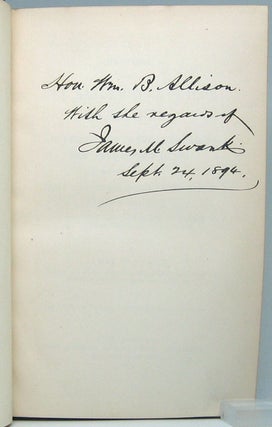 Hon. Wm. B. Allison.
With the regards of
James M. Swank.
Sept. 24, 1894.